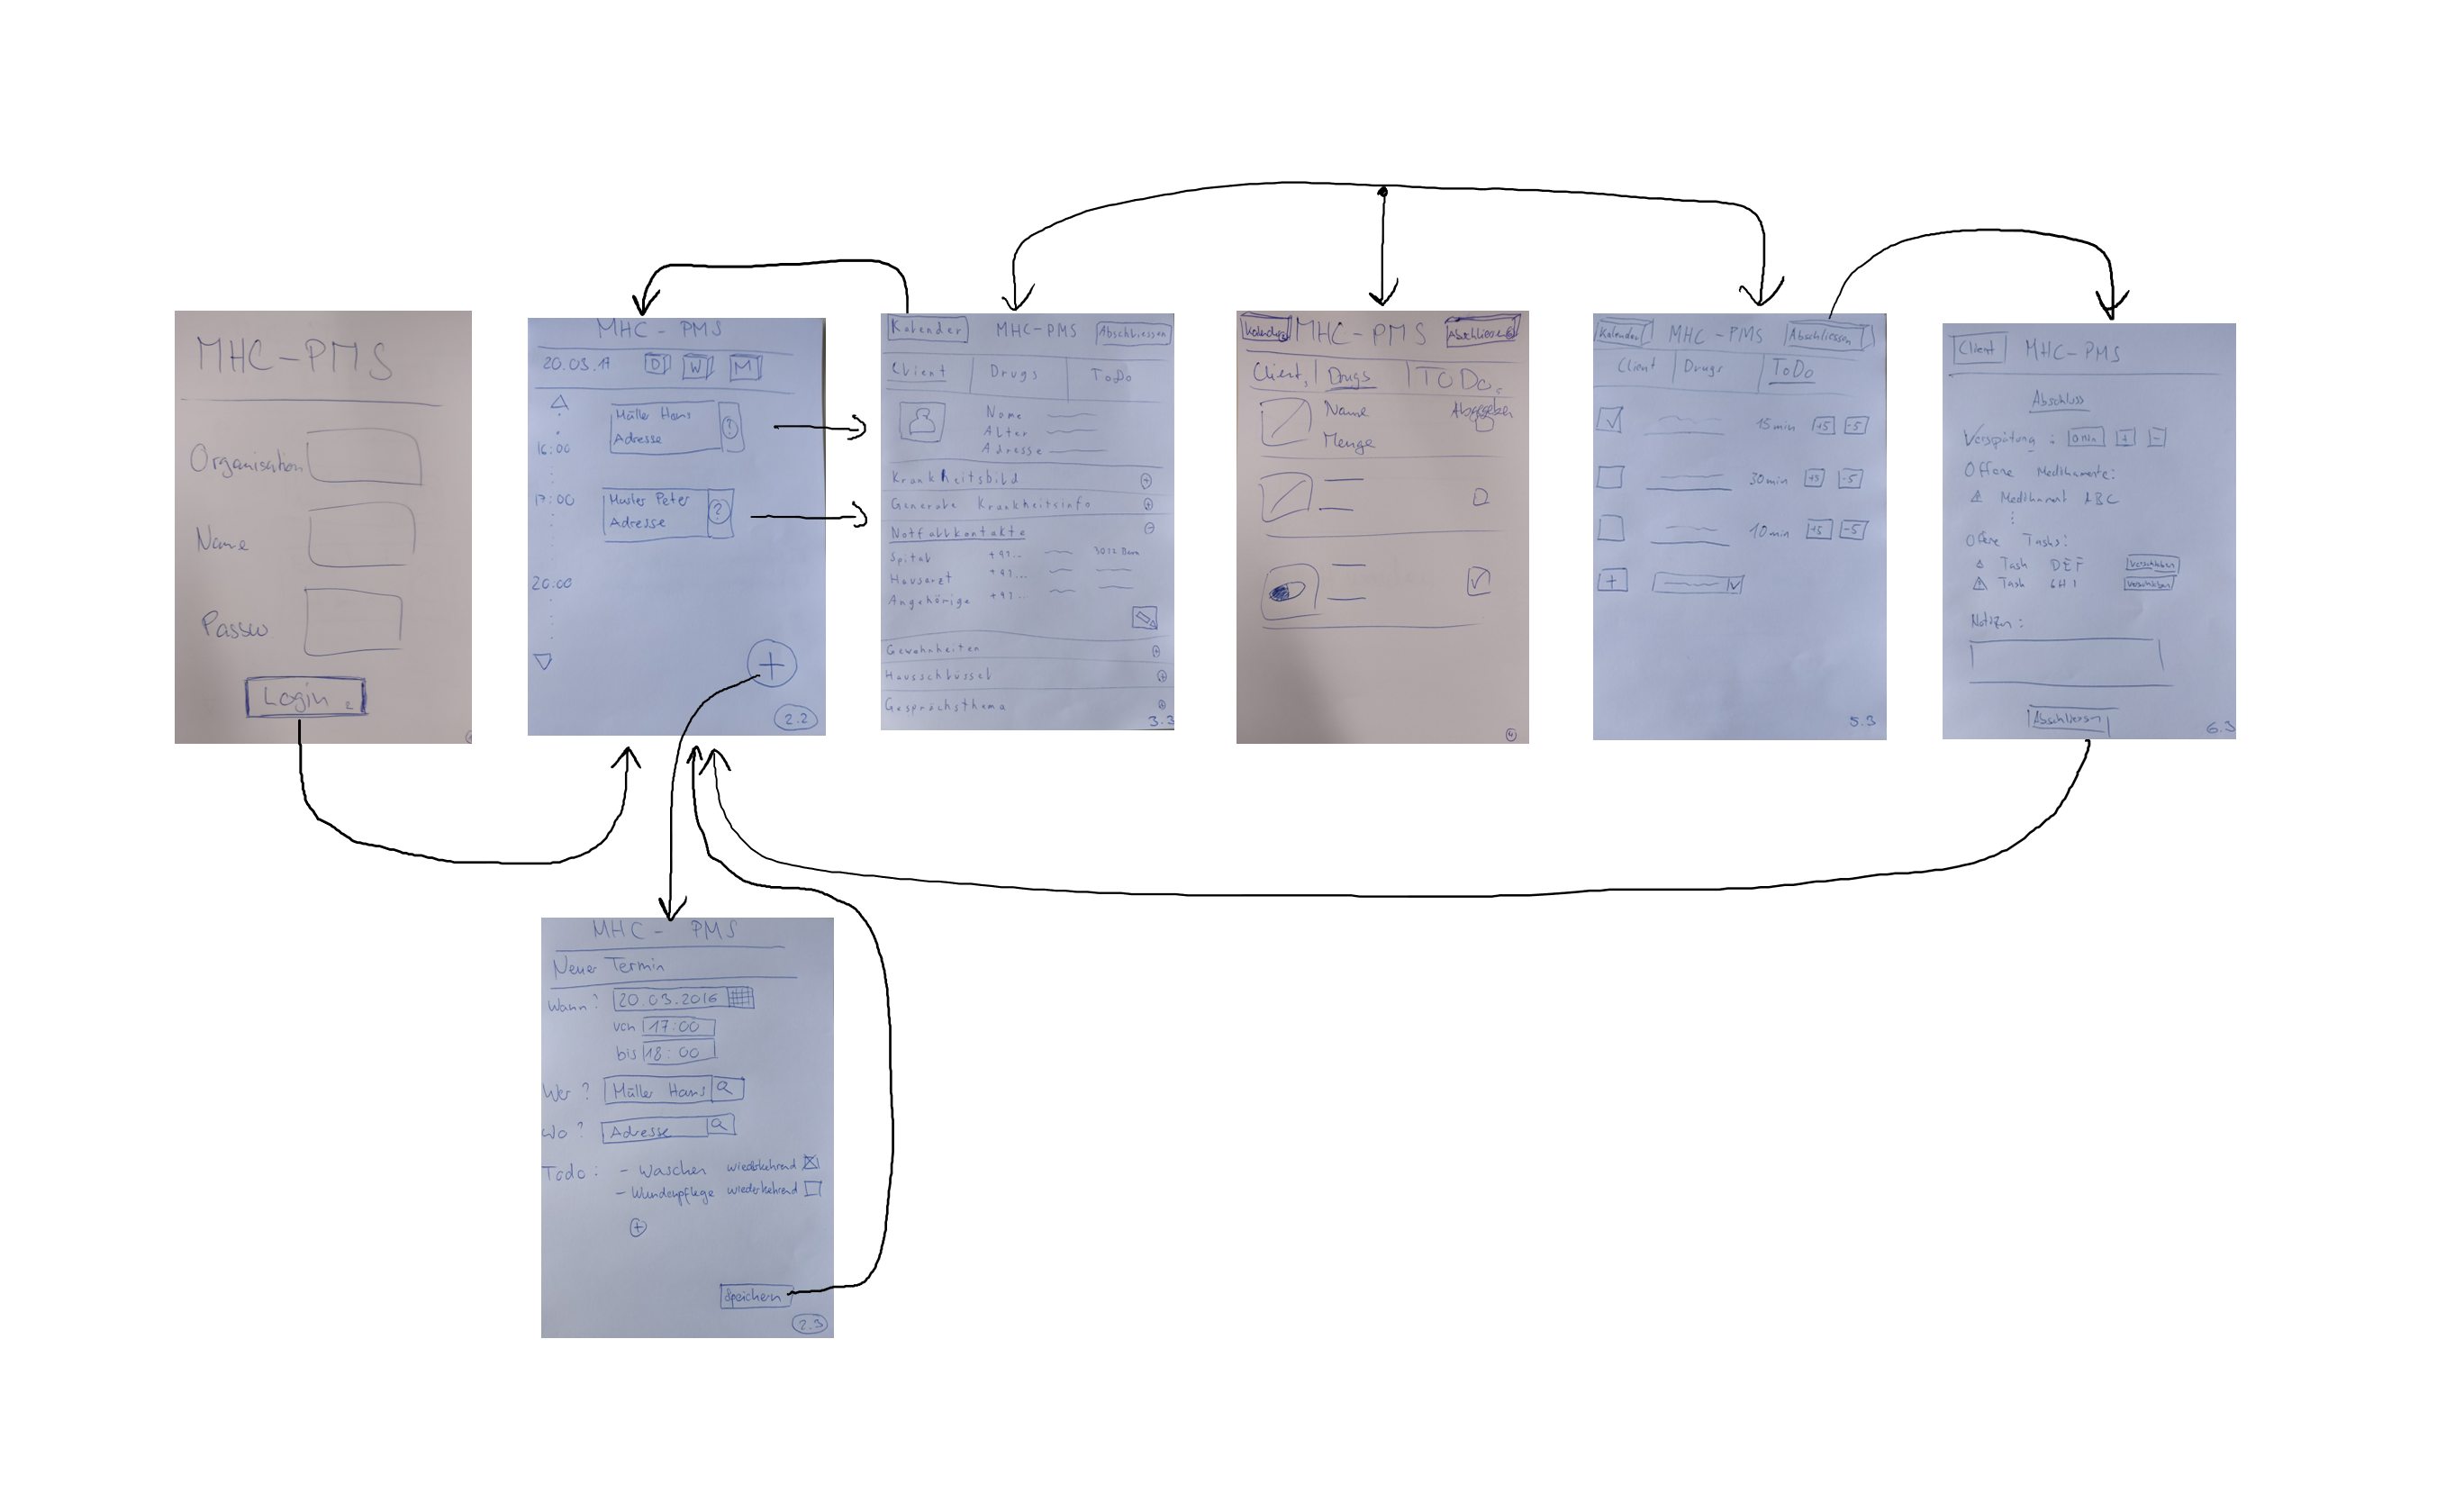 MHC-PMS
Organisation
Name
Passw.
Login 2
MHC - PMS
20.03.17 D W M
Müller Hans
Adresse
?
16:00
17:00
Muster Peter
Adresse
?
20.00
+
2.2
Kalender MHC-PMS Abschliessen
Client Drugs ToDo
Name
Alter
Adresse
Krankheitsbild +
Generelle Krankheitsinfo +
Notfallkontakte -
Spital +41... 3012 Bern
Hausarzt +41...
Angehörige +41...
Gewohnheiten +
Hausschlüssel +
Gesprächsthema +
3.3
Kalender MHC-PMS Abschliessen
Client, Drugs ToDo
Name Abgegeben
Menge
4
Kalender MHC-PMS Abschliessen
Client Drugs ToDo
15min +5 -5
30min +5 -5
10min +5 -5
+
5.3
Client MHC-PMS
Abschluss
Verspätung : 0 Min + -
Offene Medikamente:
Medikament ABC
Offene Tasks:
Task DEF Verschieben
Task GHI Verschieben
Notizen:
Abschliessen
6.3
MHC - PMS
Neuer Termin
Wann? 20.03.2016
von 17:00
bis 18:00
Wer? Müller Hans
Wo? Adresse
Todo: - Waschen wiederkehrend
- Wundenpflege wiederkehrend
+
Speichern
2.3